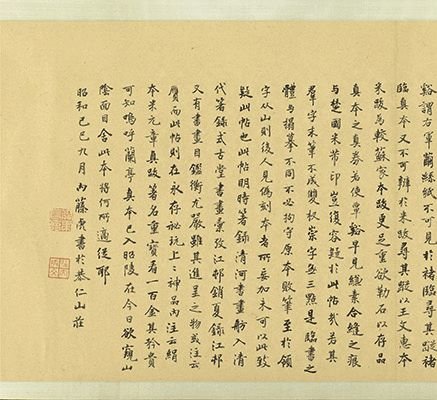 谿謂右軍繭絲紙不可見於褚尋其蹤褚
臨真本又不可辨於米跋尋其蹤以王文惠本
米跋為較蘇家本跋更足重欲勒石以存品
真本之真卷為使覃谿早見縑素合縫之痕
與楚國米芾印豈復容疑於此帖哉若其
羣字末筆不成雙杈崇字無三點是臨書之
體與搨摹不同不必拘守原本敗筆至於領
字从山則後人見偽刻本者所妄加未可以此致
疑此帖也此帖明時著錄清河書畫舫入清
代著錄式古堂書畫彙攷江邨銷夏錄江邨
又有書畫目鑑衡尤嚴雖其進呈之物或注云
贋而此帖則在永存祕玩上〻神品內注云絹
本米元章真跋著名重寶看一百金其矜貴
可知嗚呼蘭亭真本已入昭陵在今日欲窺山
陰面目舍此本將何所適從耶
昭和己巳九月內藤虎書於恭仁山莊